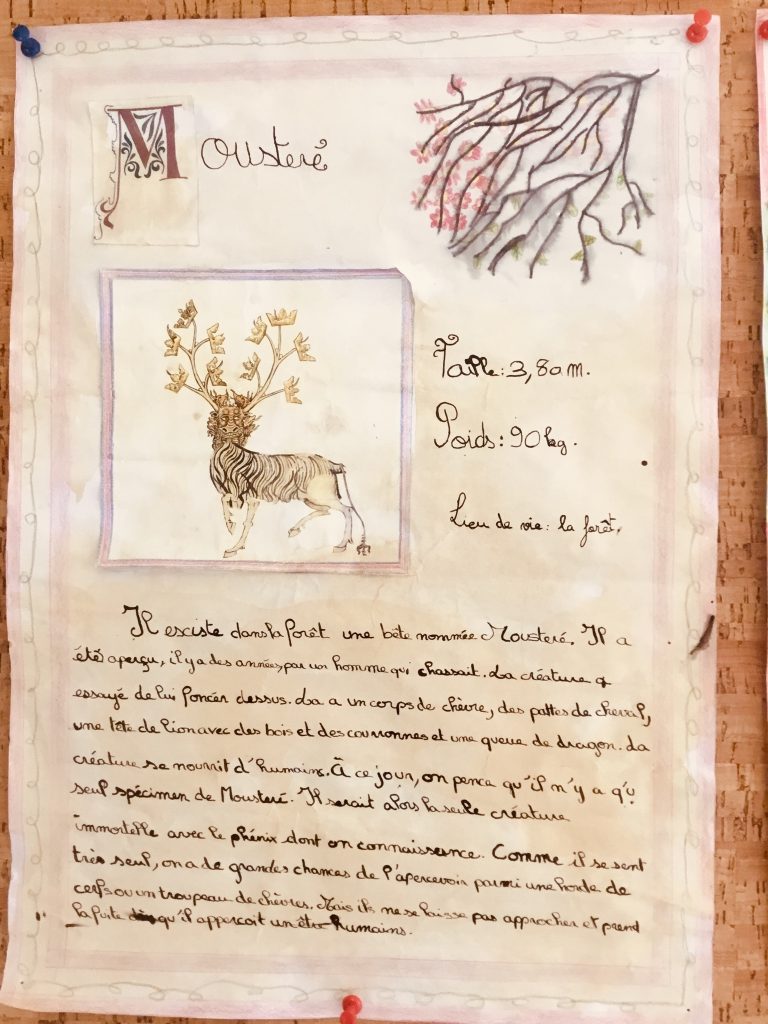 Mousteré
Taille : 3,80 m.
Poids : 90 kg.
Lieu de vie : la forêt.
Il esciste dans la forêt une bête nommée Mousteré. Il a
été aperçu, il y a des années, par un homme qui chassait. La créature
essayé de lui foncer dessus. La a un corps de chèvre, des pattes de cheval,
une tête de lion avec des bois et des couronnes et une queue de dragon. La
créature se nourrit d'humains. À ce jour, on pence qu'il n'y a qu'u
seul spécimen de Mousteré. Il serait alors la seule créature
immortelle avec le phénix dont on connaissance. Comme il se sent
très seul, on a de grandes chances de l'apercevoir parmi une horde de
cerfs ou un troupeau de chèvres. Mais ils ne se laisse pas approcher et prend
la fuite qu'il apperçoit un être humains.